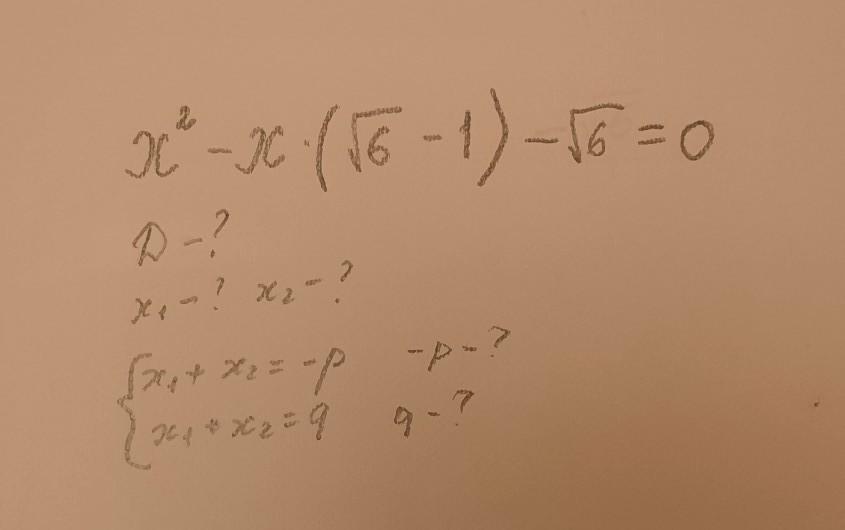 x² - x · (√6 - 1) - √6 = 0
D - ?
x₁ - ? x₂ - ?
{ x₁ + x₂ = -p -p - ?
x₁ + x₂ = q q - ?